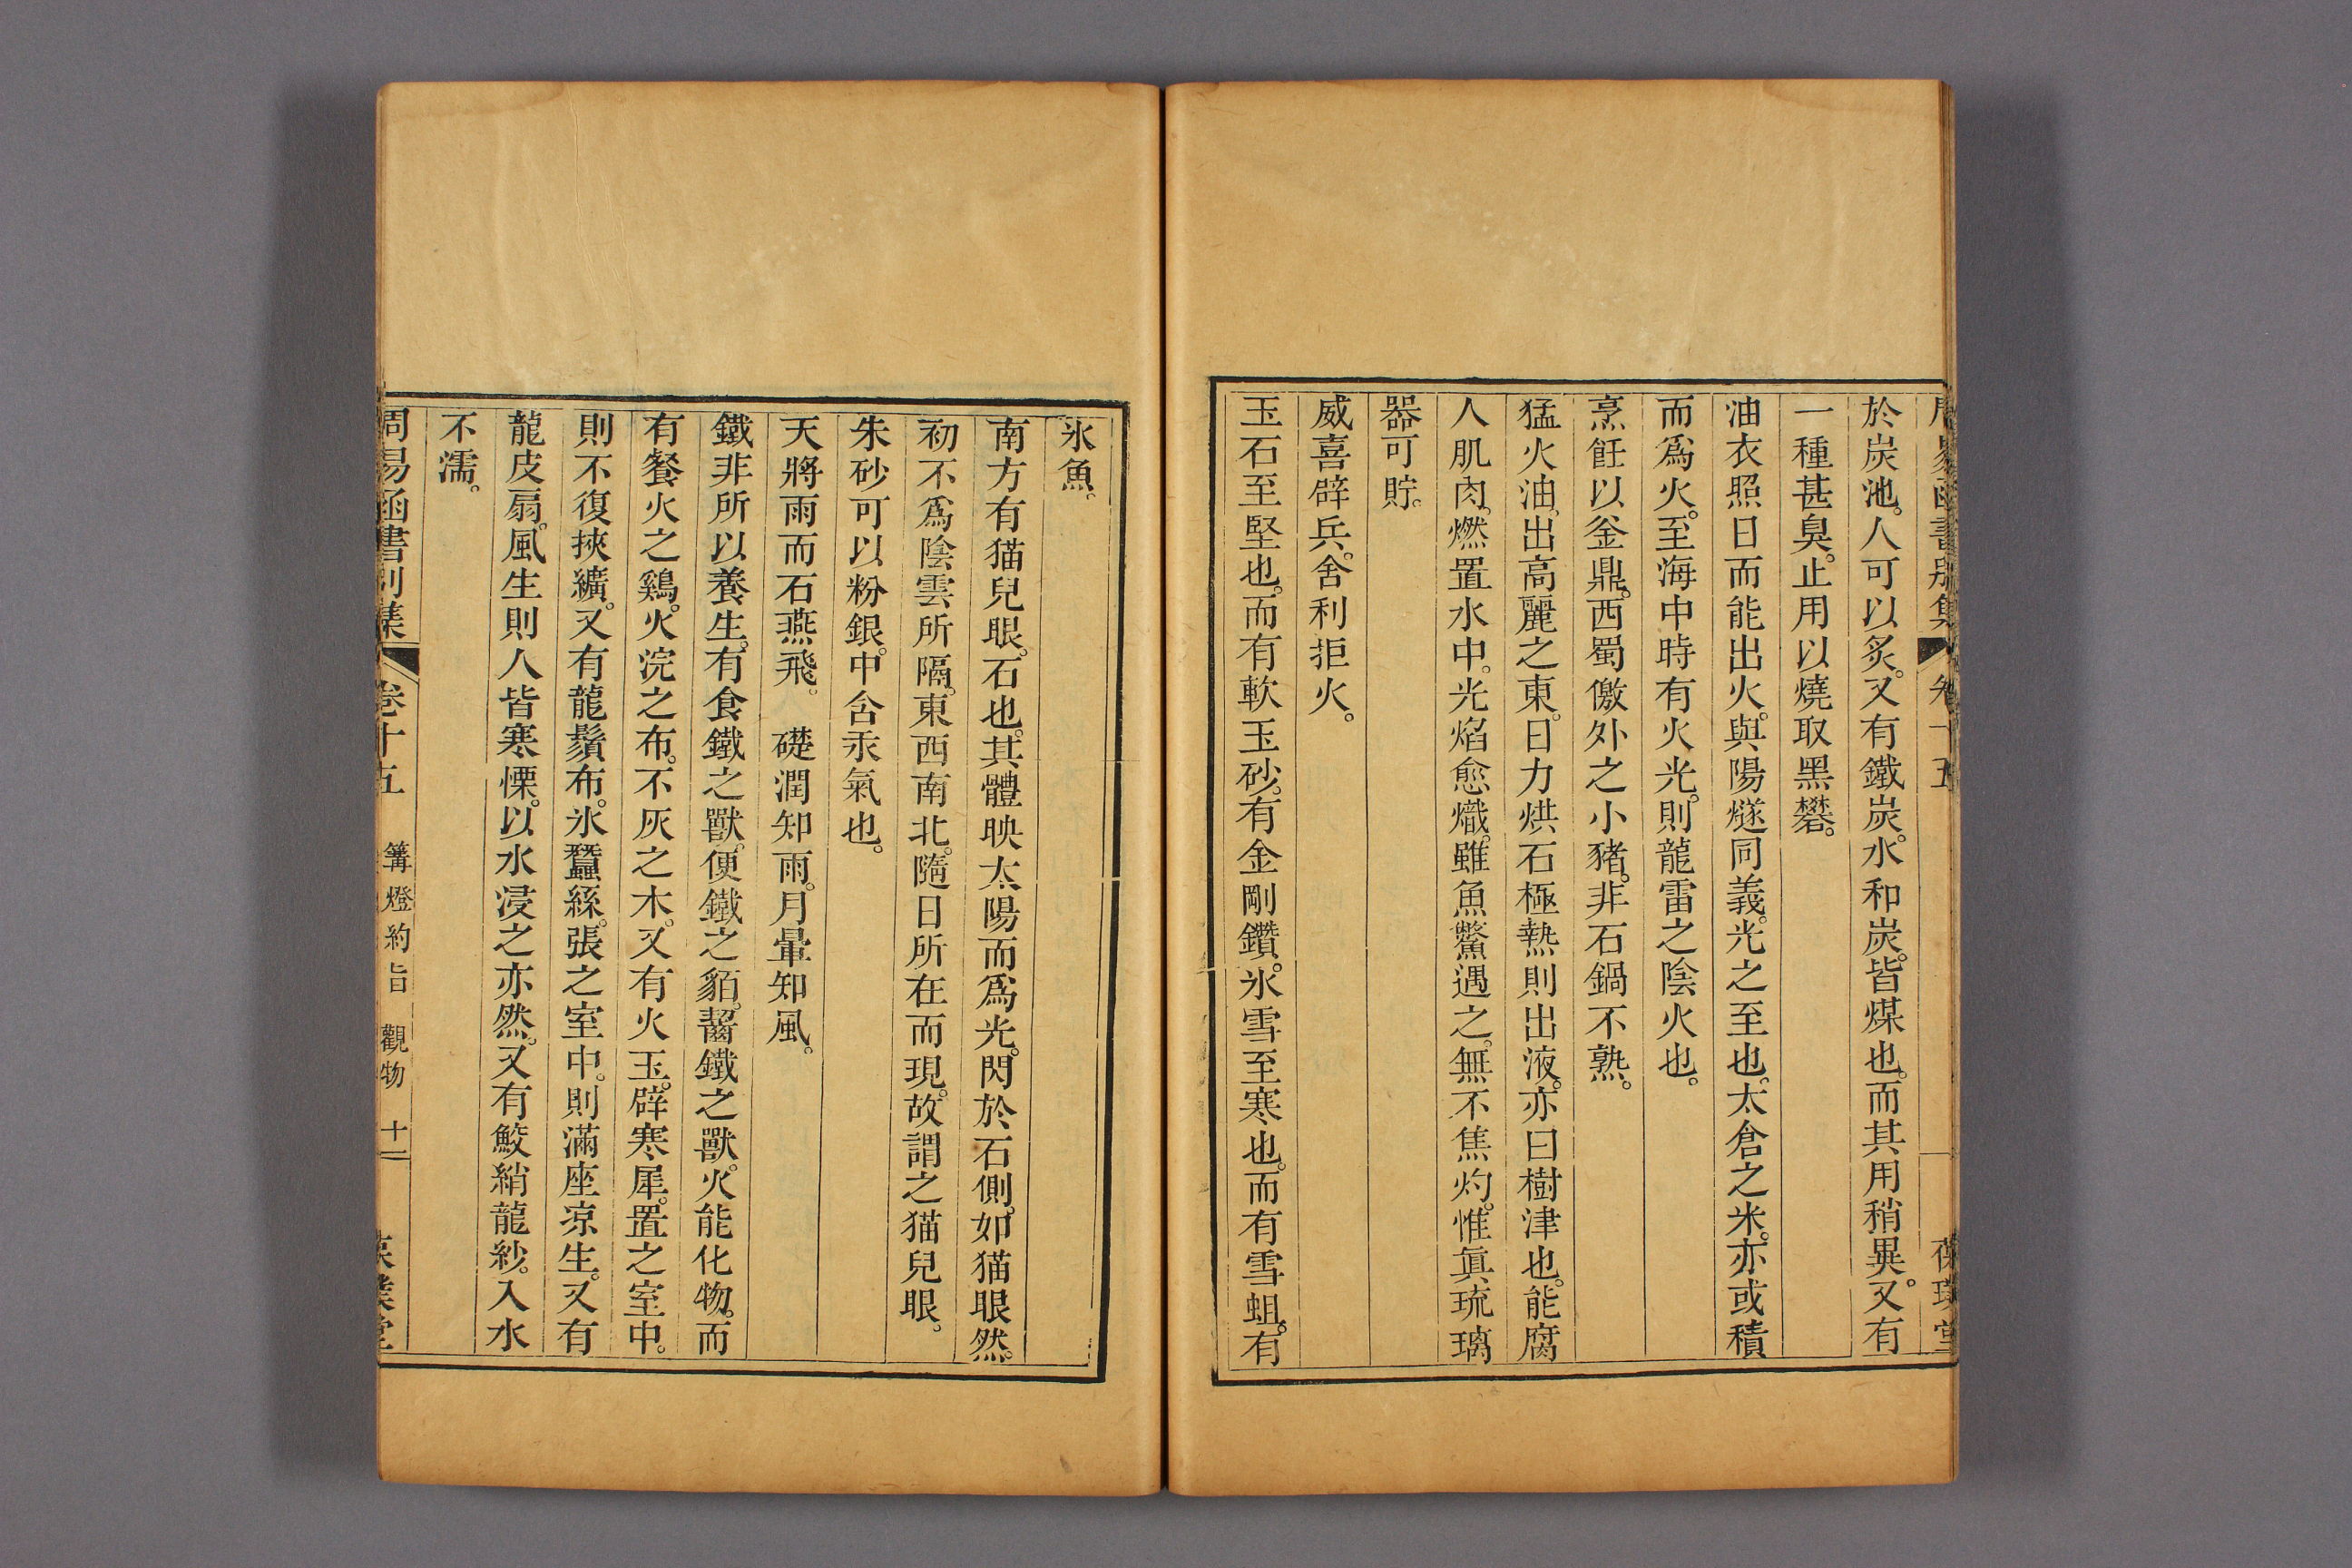 周易函書別集 卷十五 葆璞堂
於炭池。人可以炙。又有鐵炭。水和炭。皆煤也。而其用稍異。又有
一種甚臭。止用以燒取黑礬。
油衣照日而能出火。與陽燧同義。光之至也。太倉之米。亦或積
而爲火。至海中時有火光。則龍雷之陰火也。
烹飪以釜鼎。西蜀儌外之小豬。非石鍋不熟。
猛火油。出高麗之東。日力烘石極熱則出液。亦曰樹津也。能腐
人肌肉。燃置水中。光焰愈熾。雖魚鱉遇之。無不焦灼。惟眞琉璃
器可貯。
威喜辟兵。舍利拒火。
玉石至堅也。而有軟玉砂。有金剛鑽。氷雪至寒也。而有雪蛆。有
氷魚。
南方有猫兒眼。石也。其體映太陽而爲光。閃於石側。如猫眼然。
初不爲陰雲所隔。東西南北。隨日所在而現。故謂之猫兒眼。
朱砂可以粉銀。中含汞氣也。
天將雨而石燕飛。 礎潤知雨。月暈知風。
鐵非所以養生。有食鐵之獸。便鐵之貊。齧鐵之獸。火能化物。而
有餐火之鷄。火浣之布。不灰之木。又有火玉。辟寒犀。置之室中。
則不復挾纊。又有龍鬚布。氷蠶絲。張之室中。則滿座凉生。又有
龍皮扇。風生則人皆寒慄。以水浸之亦然。又有鮫綃龍紗。入水
不濡。
周易函書別集 卷十五 篝燈約旨 觀物 十一 葆璞堂